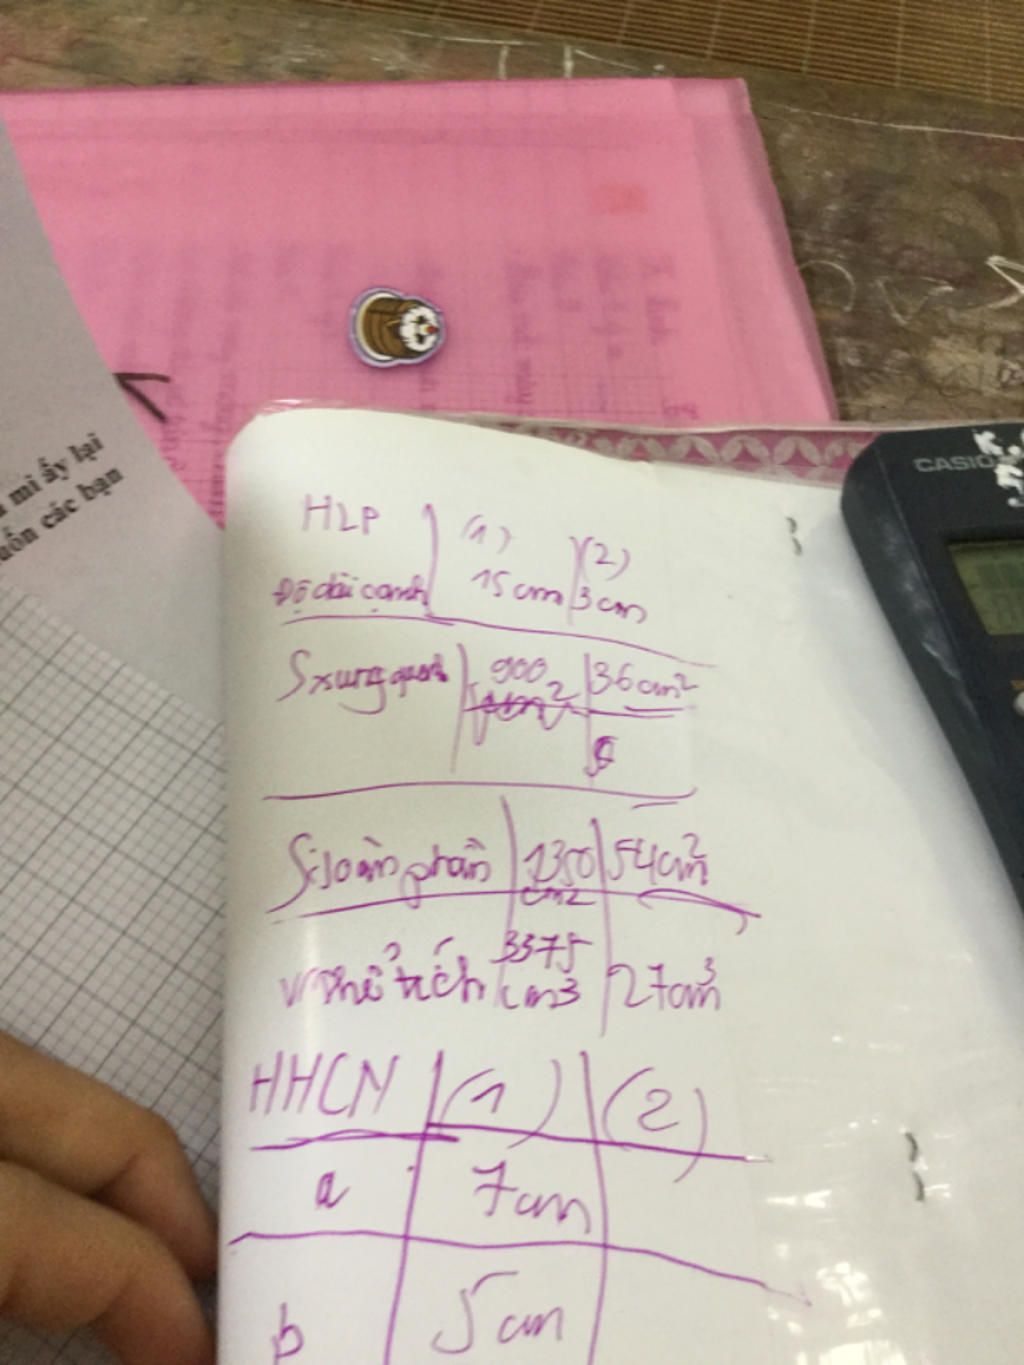 mi ấy lại
uốn các bạn
CASIO
HLP (1) (2)
Độ dài cạnh 15cm 3cm
Sxung quanh 900 36cm²
Stoàn phần 1350 cm2 54cm²
V thể tích 3375 cm3 27cm³
HHCN (1) (2)
a 7cm
b 5cm